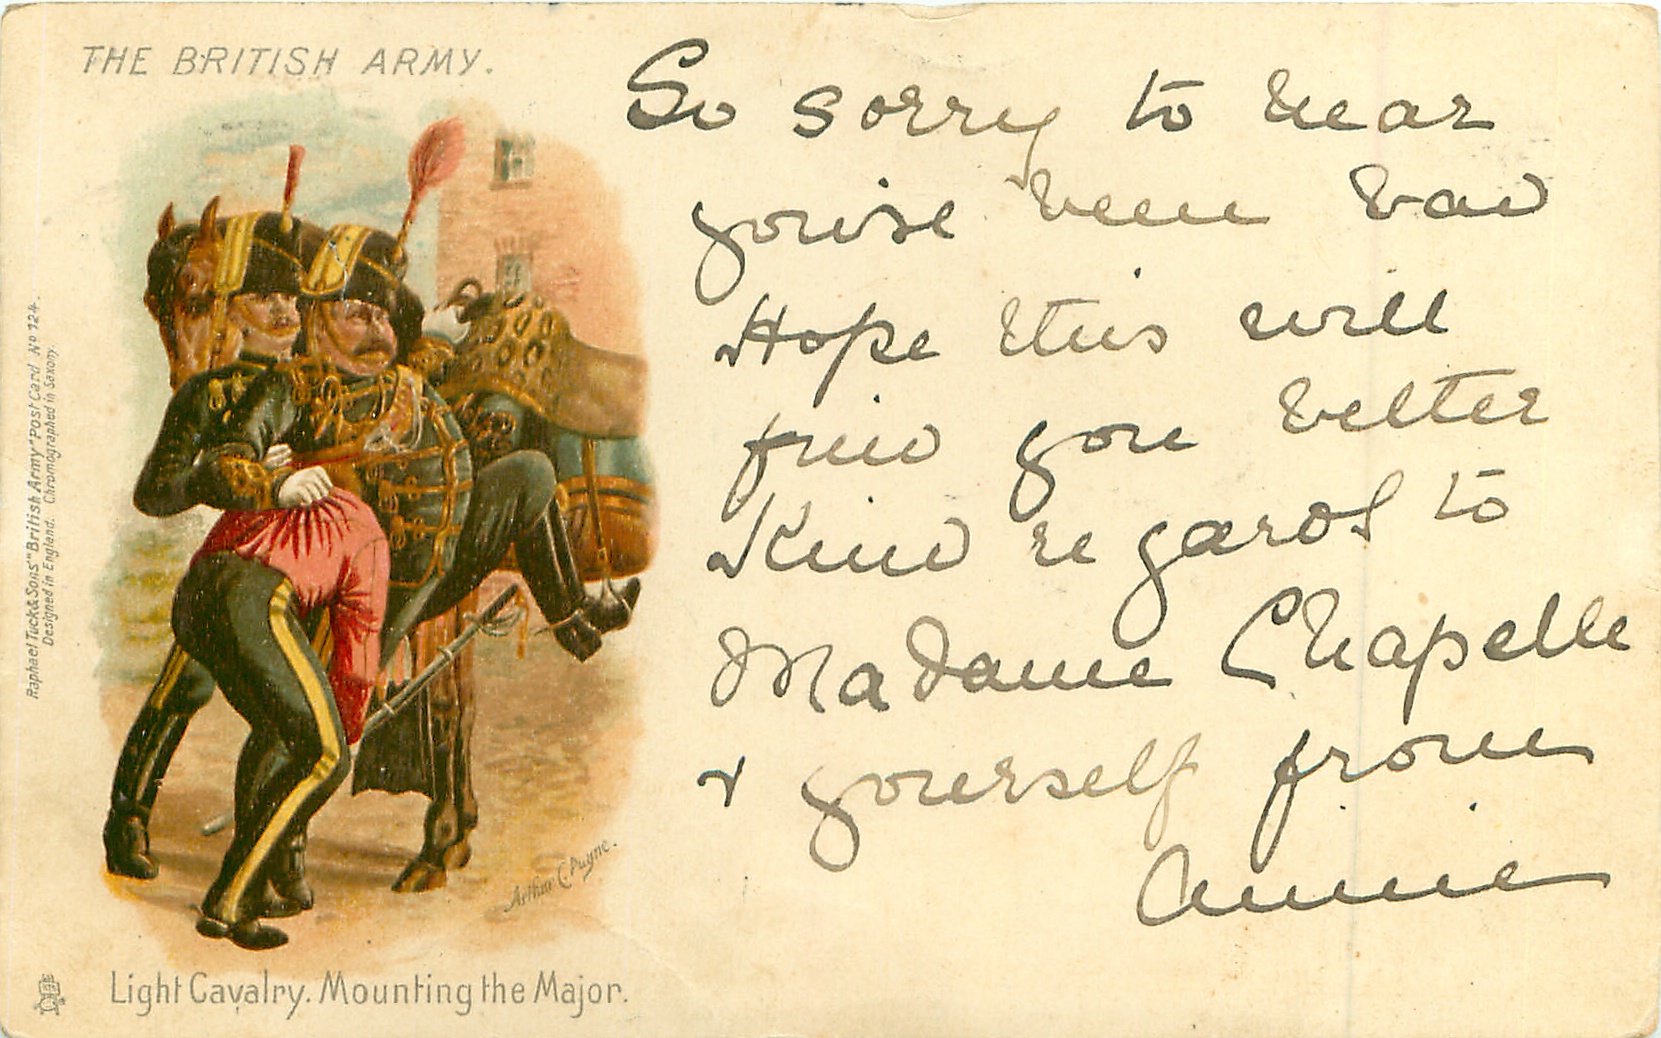 THE BRITISH ARMY.
So sorry to hear
you've been bad
Hope this will
find you better
Kind regards to
Madame Chapelle
& yourself from
Annie
Raphael Tuck & Sons' "British Army" Post Card No 124.
Designed in England. Chromographed in Saxony.
Arthur C Payne.
Light Cavalry. Mounting the Major.